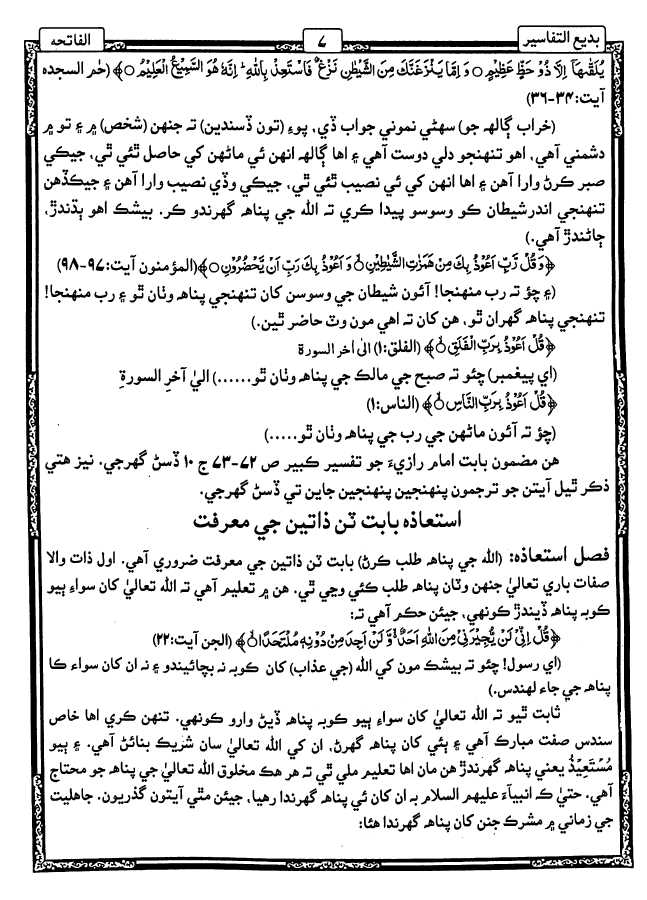 بديع التفاسير
٧
الفاتحه
يُلَقّٰهَآ اِلَّا ذُوْ حَظٍّ عَظِيْمٍ ○ وَ اِمَّا يَنْزَغَنَّكَ مِنَ الشَّيْطٰنِ نَزْغٌ فَاسْتَعِذْ بِاللّٰهِ ؕ اِنَّهٗ هُوَ السَّمِيْعُ الْعَلِيْمُ ○﴾ (حٰم السجده
آيت:٣٤-٣٦)
(خراب ڳالهه جو) سهڻي نموني جواب ڏي، پوءِ (تون ڏسندين) ته جنهن (شخص) ۾ ۽ تو ۾
دشمني آهي، اهو تنهنجو دلي دوست آهي ۽ اها ڳالهه انهن ئي ماڻهن کي حاصل ٿئي ٿي، جيڪي
صبر ڪرڻ وارا آهن ۽ اها انهن کي ئي نصيب ٿئي ٿي، جيڪي وڏي نصيب وارا آهن ۽ جيڪڏهن
تنهنجي اندر شيطان ڪو وسوسو پيدا ڪري ته الله جي پناهه گهرندو ڪر. بيشڪ اهو ٻڌندڙ،
ڄاڻندڙ آهي.)
﴿وَ قُلْ رَّبِّ اَعُوْذُ بِكَ مِنْ هَمَزٰتِ الشَّيٰطِيْنِ ○ وَ اَعُوْذُ بِكَ رَبِّ اَنْ يَّحْضُرُوْنِ ○﴾(المؤمنون آيت:٩٧-٩٨)
(۽ چؤ ته رب منهنجا! آئون شيطان جي وسوسن کان تنهنجي پناهه وٺان ٿو ۽ رب منهنجا!
تنهنجي پناهه گهران ٿو، هن کان ته اهي مون وٽ حاضر ٿين.)
﴿قُلْ اَعُوْذُ بِرَبِّ الْفَلَقِ ○﴾ (الفلق:١) الىٰ آخر السورة
(اي پيغمبر) چئو ته صبح جي مالڪ جي پناهه وٺان ٿو......) اليٰ آخرِ السورةِ
﴿قُلْ اَعُوْذُ بِرَبِّ النَّاسِ ○﴾ (الناس:١)
(چؤ ته آئون ماڻهن جي رب جي پناهه وٺان ٿو.....)
هن مضمون بابت امام رازيءَ جو تفسير ڪبير ص ٧٢-٧٣ ج ١٠ ڏسڻ گهرجي. نيز هتي
ذڪر ٿيل آيتن جو ترجمون پنهنجين پنهنجين جاين تي ڏسڻ گهرجي.
استعاذه بابت ٽن ذاتين جي معرفت
فصل استعاذه: (الله جي پناهه طلب ڪرڻ) بابت ٽن ذاتين جي معرفت ضروري آهي. اول ذات والا
صفات باري تعاليٰ جنهن وٽان پناهه طلب ڪئي وڃي ٿي. هن ۾ تعليم آهي ته الله تعاليٰ کان سواءِ ٻيو
ڪوبه پناهه ڏيندڙ ڪونهي، جيئن حڪم آهي ته:
﴿قُلْ اِنِّيْ لَنْ يُّجِيْرَنِيْ مِنَ اللّٰهِ اَحَدٌ ۙ وَّ لَنْ اَجِدَ مِنْ دُوْنِهٖ مُلْتَحَدًا ○﴾ (الجن آيت:٢٢)
(اي رسول! چئو ته بيشڪ مون کي الله (جي عذاب) کان ڪوبه نه بچائيندو ۽ نه ان کان سواءِ ڪا
پناهه جي جاءِ لهندس.)
ثابت ٿيو ته الله تعاليٰ کان سواءِ ٻيو ڪوبه پناهه ڏيڻ وارو ڪونهي. تنهن ڪري اها خاص
سندس صفت مبارڪ آهي ۽ ٻئي کان پناهه گهرڻ، ان کي الله تعاليٰ سان شريڪ بنائڻ آهي. ۽ ٻيو
مُسْتَعِيْذُ يعني پناهه گهرندڙ هن مان اها تعليم ملي ٿي ته هر هڪ مخلوق الله تعاليٰ جي پناهه جو محتاج
آهي. حتيٰ ڪ انبيآءَ عليهم السلام به ان کان ئي پناهه گهرندا رهيا، جيئن مٿي آيتون گذريون. جاهليت
جي زماني ۾ مشرڪ جنن کان پناهه گهرندا هئا: